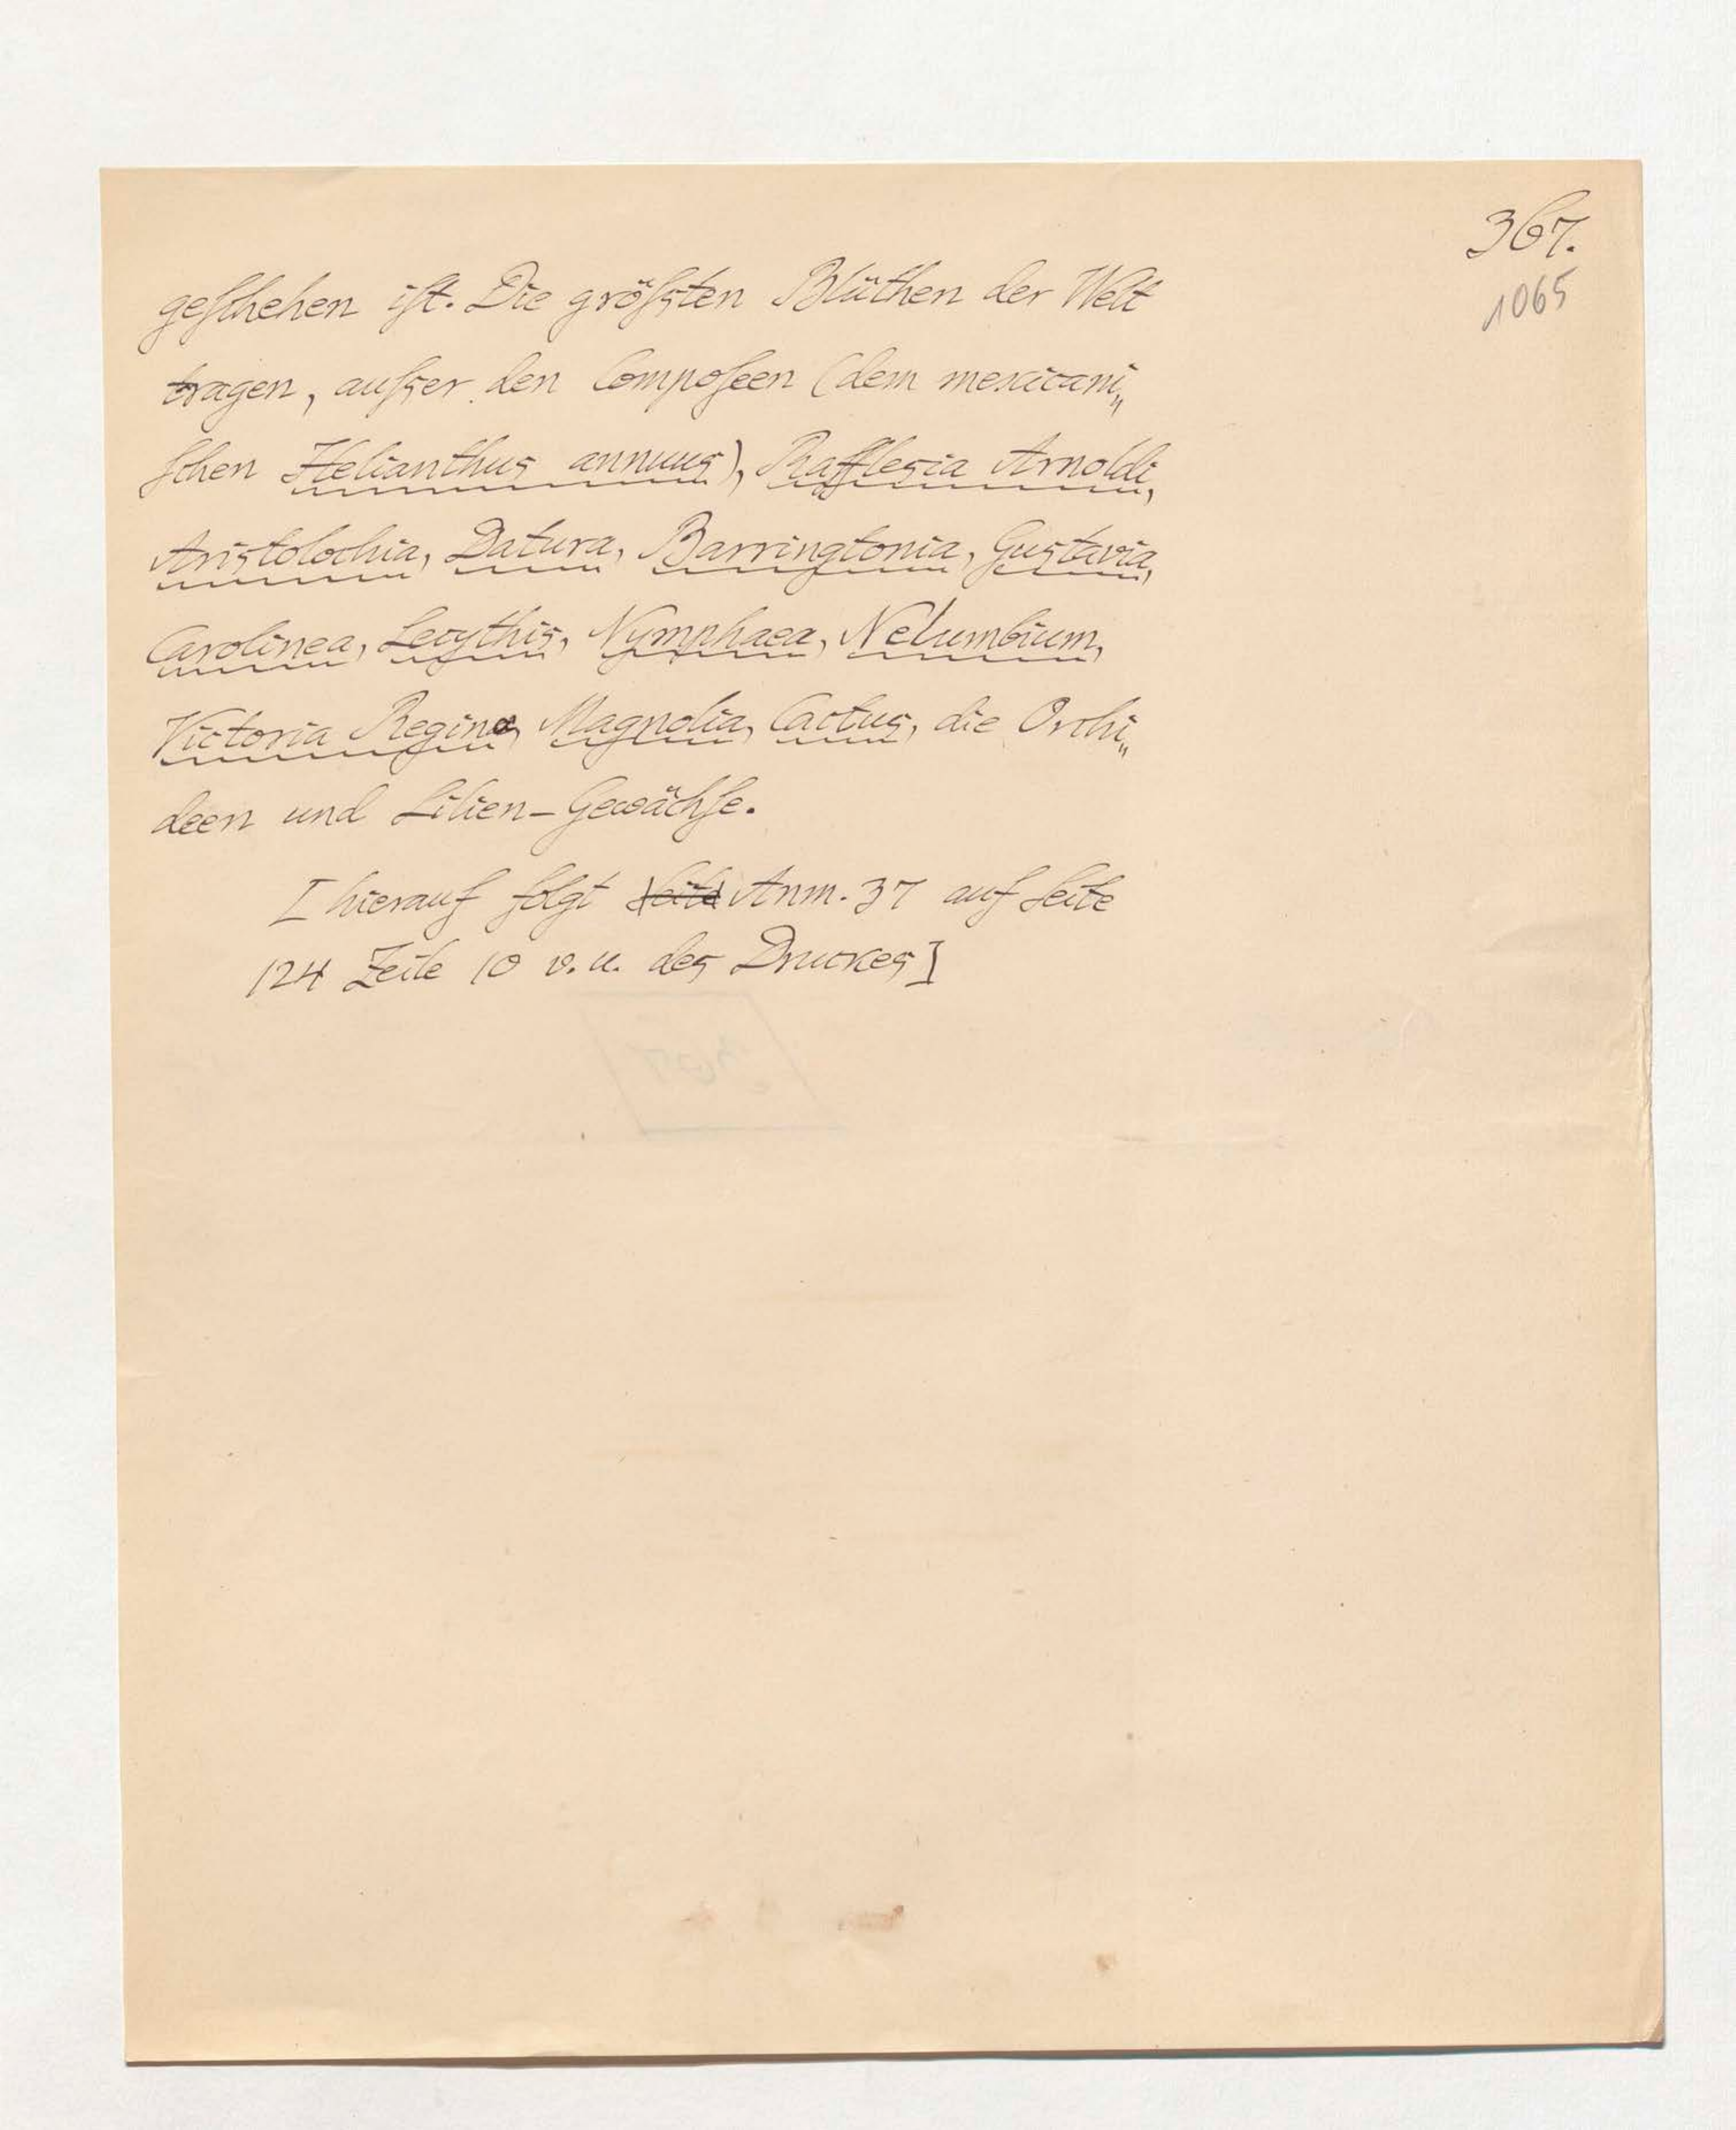 367.
1065
geſchehen iſt. Die gröſsten Blüthen der Welt
tragen, auſser den Compoſeen (dem mexicani„
ſchen Helianthus annuus), Rafflesia Arnoldi,
Aristolochia, Datura, Barringtonia, Gustavia,
Carolinea, Lecythis, Nymphaea, Nelumbium,
Victoria Regina, Magnolia, Cactus, die Orchi„
deen und Lilien-Gewächſe.
[hierauf folgt Seite Anm. 37 auf Seite
124 Zeile 10 v. u. des Druckes]